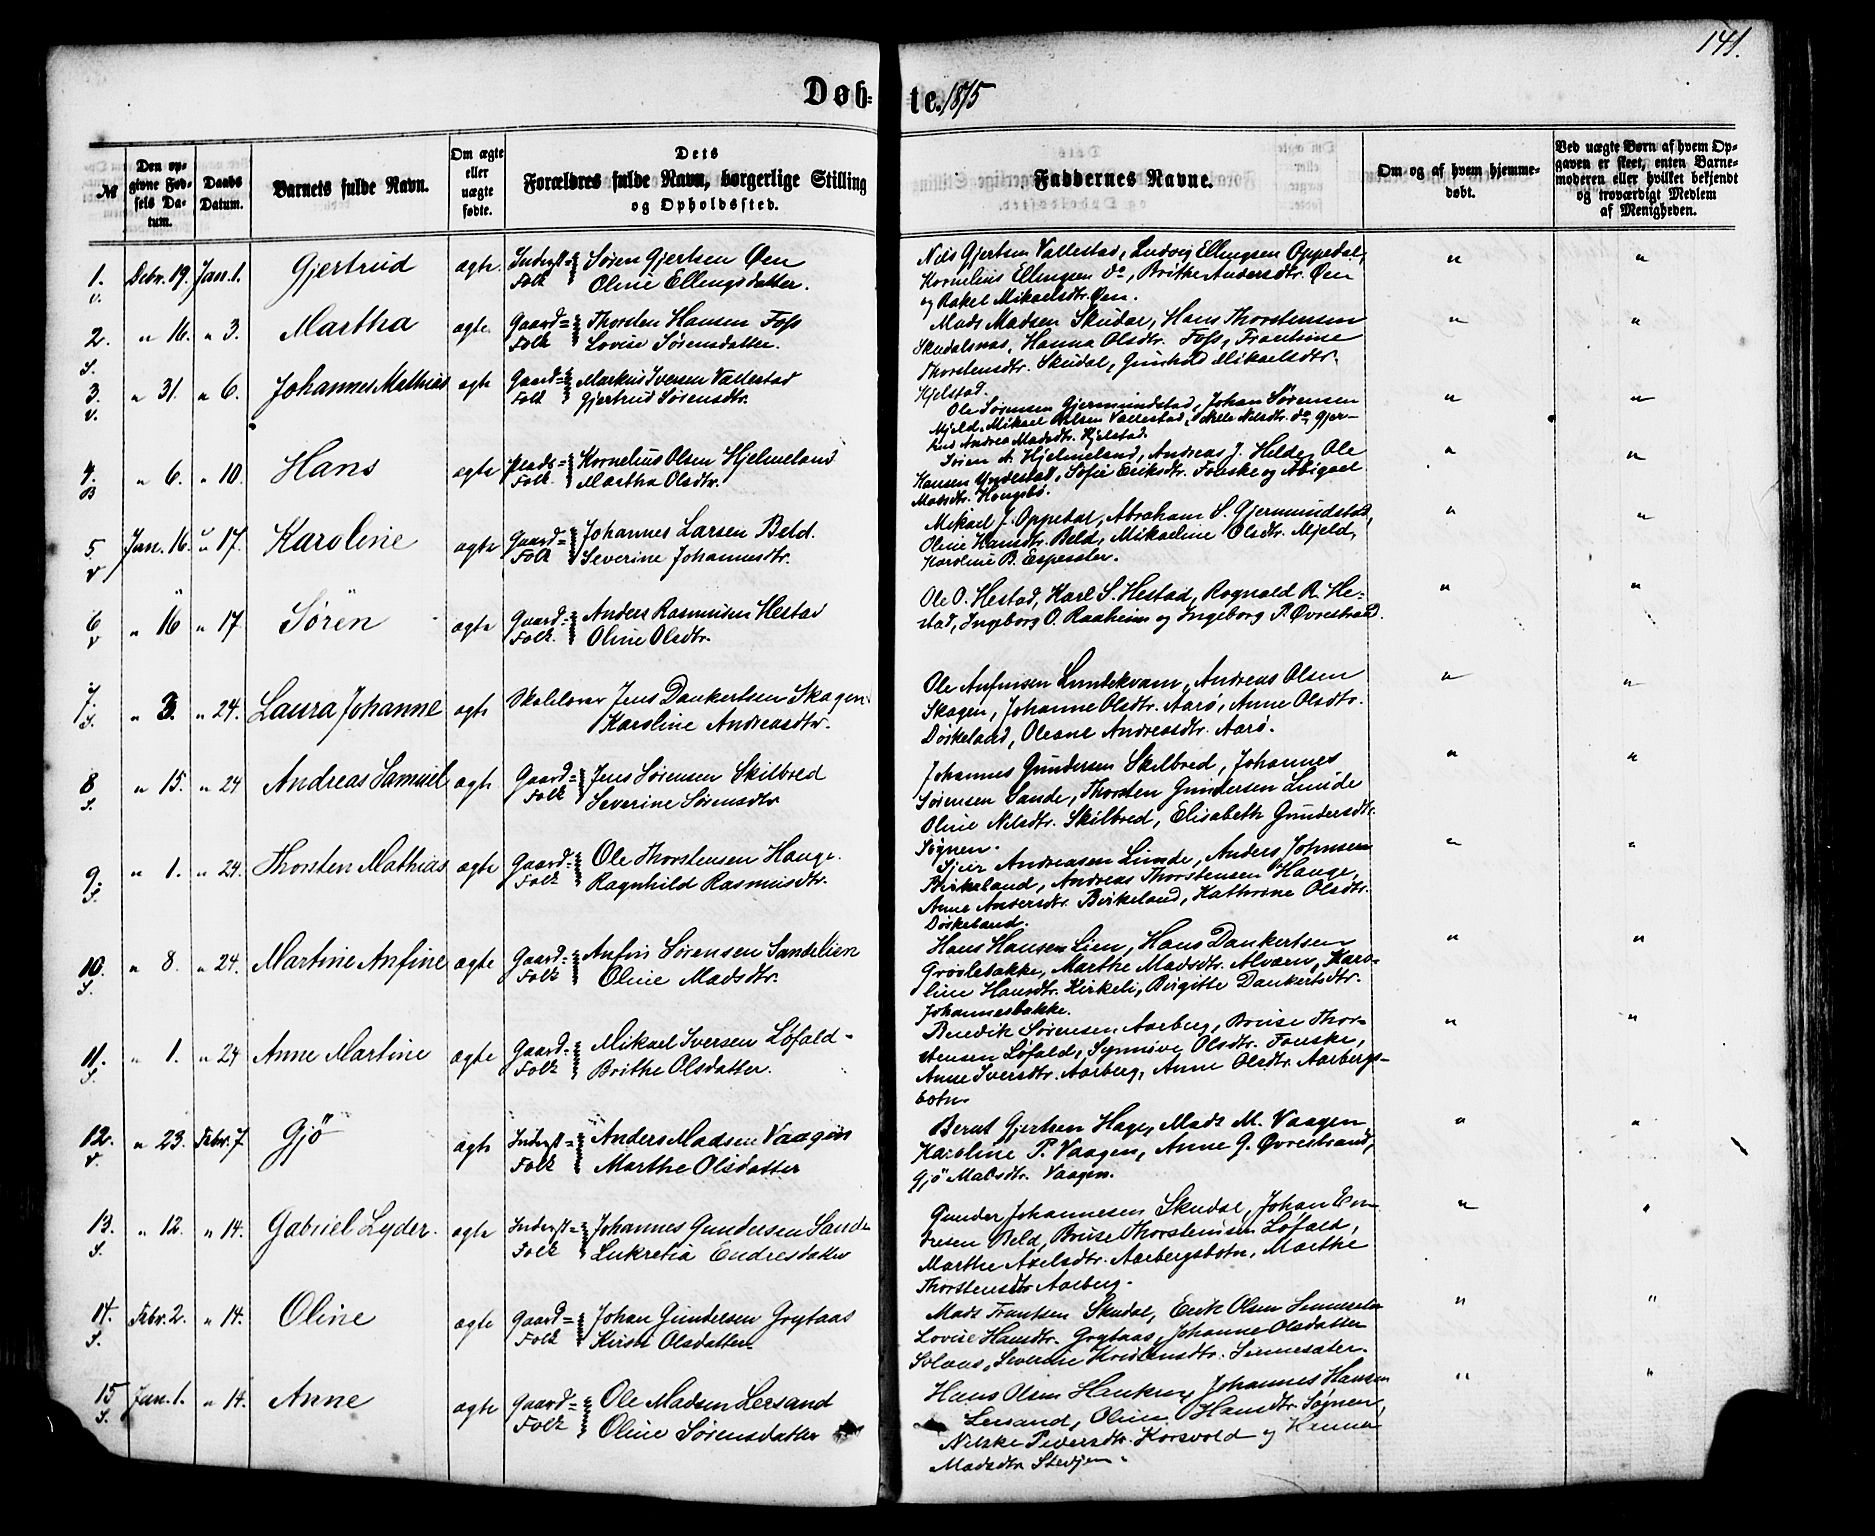 141.
Døb- te. 1875
№
Den op-
givne Fød-
sels Da-
tum.
Daabs
Datum.
Barnets fulde Navn.
Om ægte
eller
uægte
fødte.
Dets
Forældres fulde Navn, borgerlige Stilling
og Opholdssted.
Faddernes Navne.
Om og af hvem hjemme-
døbt.
Ved uægte Børn af hvem Op-
gaven er skeet, enten Barne-
moderen eller hvilket bekjendt
og troværdigt Medlem
af Menigheden.
1. v. Debr. 19. Jan. 1. Gjertrud ægte Inderst= Folk Søren Gjertsen Øen
Oline Ellingsdatter.
Nils Gjertsen Vallestad, Ludvig Ellingsen Oppedal,
Kornelius Ellingsen do, Brithe Andersdtr. Øen
og Rakel Mikaelsdtr. Øen. " "
2. S. " 16. " 3. Martha ægte Gaard= Folk Thorsten Hansen Foss
Lovise Sørensdatter.
Mads Madsen Skudal, Hans Thorstensen
Skudalsnæs, Hanna Olsdtr. Foss, Frantine
Thorstensdtr. Skudal, Gunhild Mikaelsdtr.
Hjelstad. " "
3. v. " 31. " 6. Johannes Mathias ægte Gaard= Folk Markus Iversen Vallestad
Gjertrud Sørensdtr.
Ole Sørensen Gjermundstad, Johan Sørensen
Mjeld, Mikael Nilsen Vallestad, Nelle Nilsdtr. do, Gjer-
Andrea Madsdtr. Hjelstad. " "
4. B " 6. " 10. Hans ægte Plads= Folk Kornelius Olsen Hjelmeland
Martha Olsdtr.
Søren A. Hjelmeland, Andreas J. Helde, Ole
Hansen Yndestad, Sofie Eriksdtr. Fauske og Abigael
Madsdtr. Kongsbø. " "
5 v Jan. 16. " 17. Karoline ægte Gaard= Folk Johannes Larsen Beld.
Severine Johannesdtr.
Mikael J. Oppedal, Abraham S. Gjermundstad,
Oline Hansdtr. Beld, Mikaeline Olsdtr. Mjeld,
Karoline B. Espeseter. " "
6 v " 16 " 17. Søren ægte Gaard= Folk Anders Rasmussen Hestad
Oline Olsdtr.
Ole O. Hestad, Karl S. Hestad, Rognald R. He-
stad, Ingeborg O. Raaheim og Ingeborg P. Øvrestrand. " "
7. S. " 3. " 24. Laura Johanne ægte Skolelærer Jens Dankertsen Skagen
Karoline Andreasdtr.
Ole Anfinsen Lundekvam, Andreas Olsen
Skagen, Johanne Olsdtr. Aarø, Anne Olsdtr.
Døskeland, Oleane Andreasdtr. Aarø. " "
8 S. " 15. " 24 Andreas Samuel ægte Gaard= Folk Jens Sørensen Skilbred
Severine Sørensdtr
Johannes Gundersen Skilbred, Johannes
Sørensen Sande, Thorsten Gundersen Lunde
Oline Nelsdtr. Skilbred, Elisabeth Gundersdtr.
Søgnen. " "
9. S. " 1. " 24. Thorsten Mathias ægte Gaard= Folk Ole Thorstensen Hauge.
Ragnhild Rasmusdtr.
Sjur Andreasen Lunde, Anders Johnsen
Birkeland, Andreas Thorstensen Hauge,
Anne Andersdtr. Birkeland, Kathrine Olsdtr.
Døskeland. " "
10. S. " 8. " 24. Martine Anfine ægte Gaard= Folk Anfin Sørensen Sandelien
Oline Madsdtr.
Hans Hansen Lien, Hans Dankertsen
Grøvlebakke, Marthe Madsdtr. Alværn, Karo-
line Hansdtr. Kirkeli, Birgitte Dankertsdtr.
Johannesbakke. " "
11. S. " 1. " 24 Anne Martine ægte Gaard= Folk Mikael Iversen Løfald
Brithe Olsdatter.
Benedik Sørensen Aarberg, Bruse Thor-
stensen Løfald, Synnøve Olsdtr. Fauske,
Anne Iversdtr. Aarberg, Anne Olsdtr. Aarbergs-
botn. " "
12. v. " 23. Febr. 7. Gjø ægte Inderst= Folk Anders Madsen Vaagen
Marthe Olsdatter
Bernt Gjertsen Hage, Mads M. Vaagen,
Karoline P. Vaagen, Anne G. Øvrestrand,
Gjø Madsdtr. Vaagen. " "
13. S. " 12. " 14. Gabriel Lyder. ægte Inderst= Folk Johannes Gundersen Sande
Lukretia Endresdatter
Gunder Johannesen Skudal, Johan En-
dresen Beld, Bruse Thorstensen Løfald,
Marthe Axelsdtr. Aarbergsbotn, Marthe
Thorstensdtr Aarberg. " "
14. S. Febr. 2. " 14. Oline ægte Gaard= Folk Johan Gundersen Grytaas
Kirsti Olsdatter
Mads Frantsen Skudal, Erik Olsen Sinnesæter
Lovise Hansdtr. Grytaas, Johanne Olsdatter
Solaas, Severine Kristensdtr. Sinnesæter. " "
15 S. Jan. 1. " 14. Anne ægte Gaard= Folk Ole Madsen Lersand
Oline Sørensdatter
Hans Olsen Haukøy, Johannes Hansen
Lersand, Oline Hansdtr. Søgnen,
Nilske Pedersdtr. Korsvold og Hanna
Madsdtr. Stedjen. " "